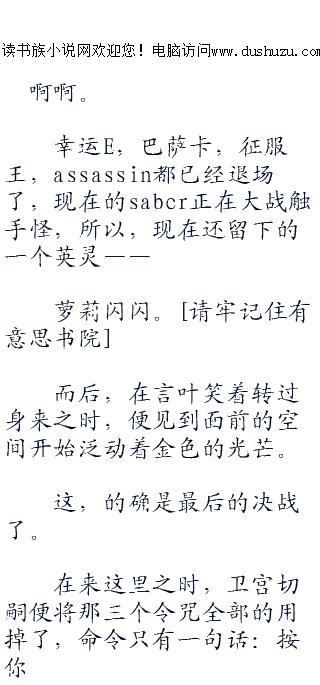 读书族小说网欢迎您！电脑访问www.dushuzu.com
啊啊。
幸运E，巴萨卡，征服
王，assassin都已经退场
了，现在的sabcr正在大战触
手怪，所以，现在还留下的
一个英灵——
萝莉闪闪。[请牢记住有
意思书院]
而后，在言叶笑着转过
身来之时，便见到面前的空
间开始泛动着金色的光芒。
这，的确是最后的决战
了。
在来这里之时，卫宫切
嗣便将那三个令咒全部的用
掉了，命令只有一句话：按
你